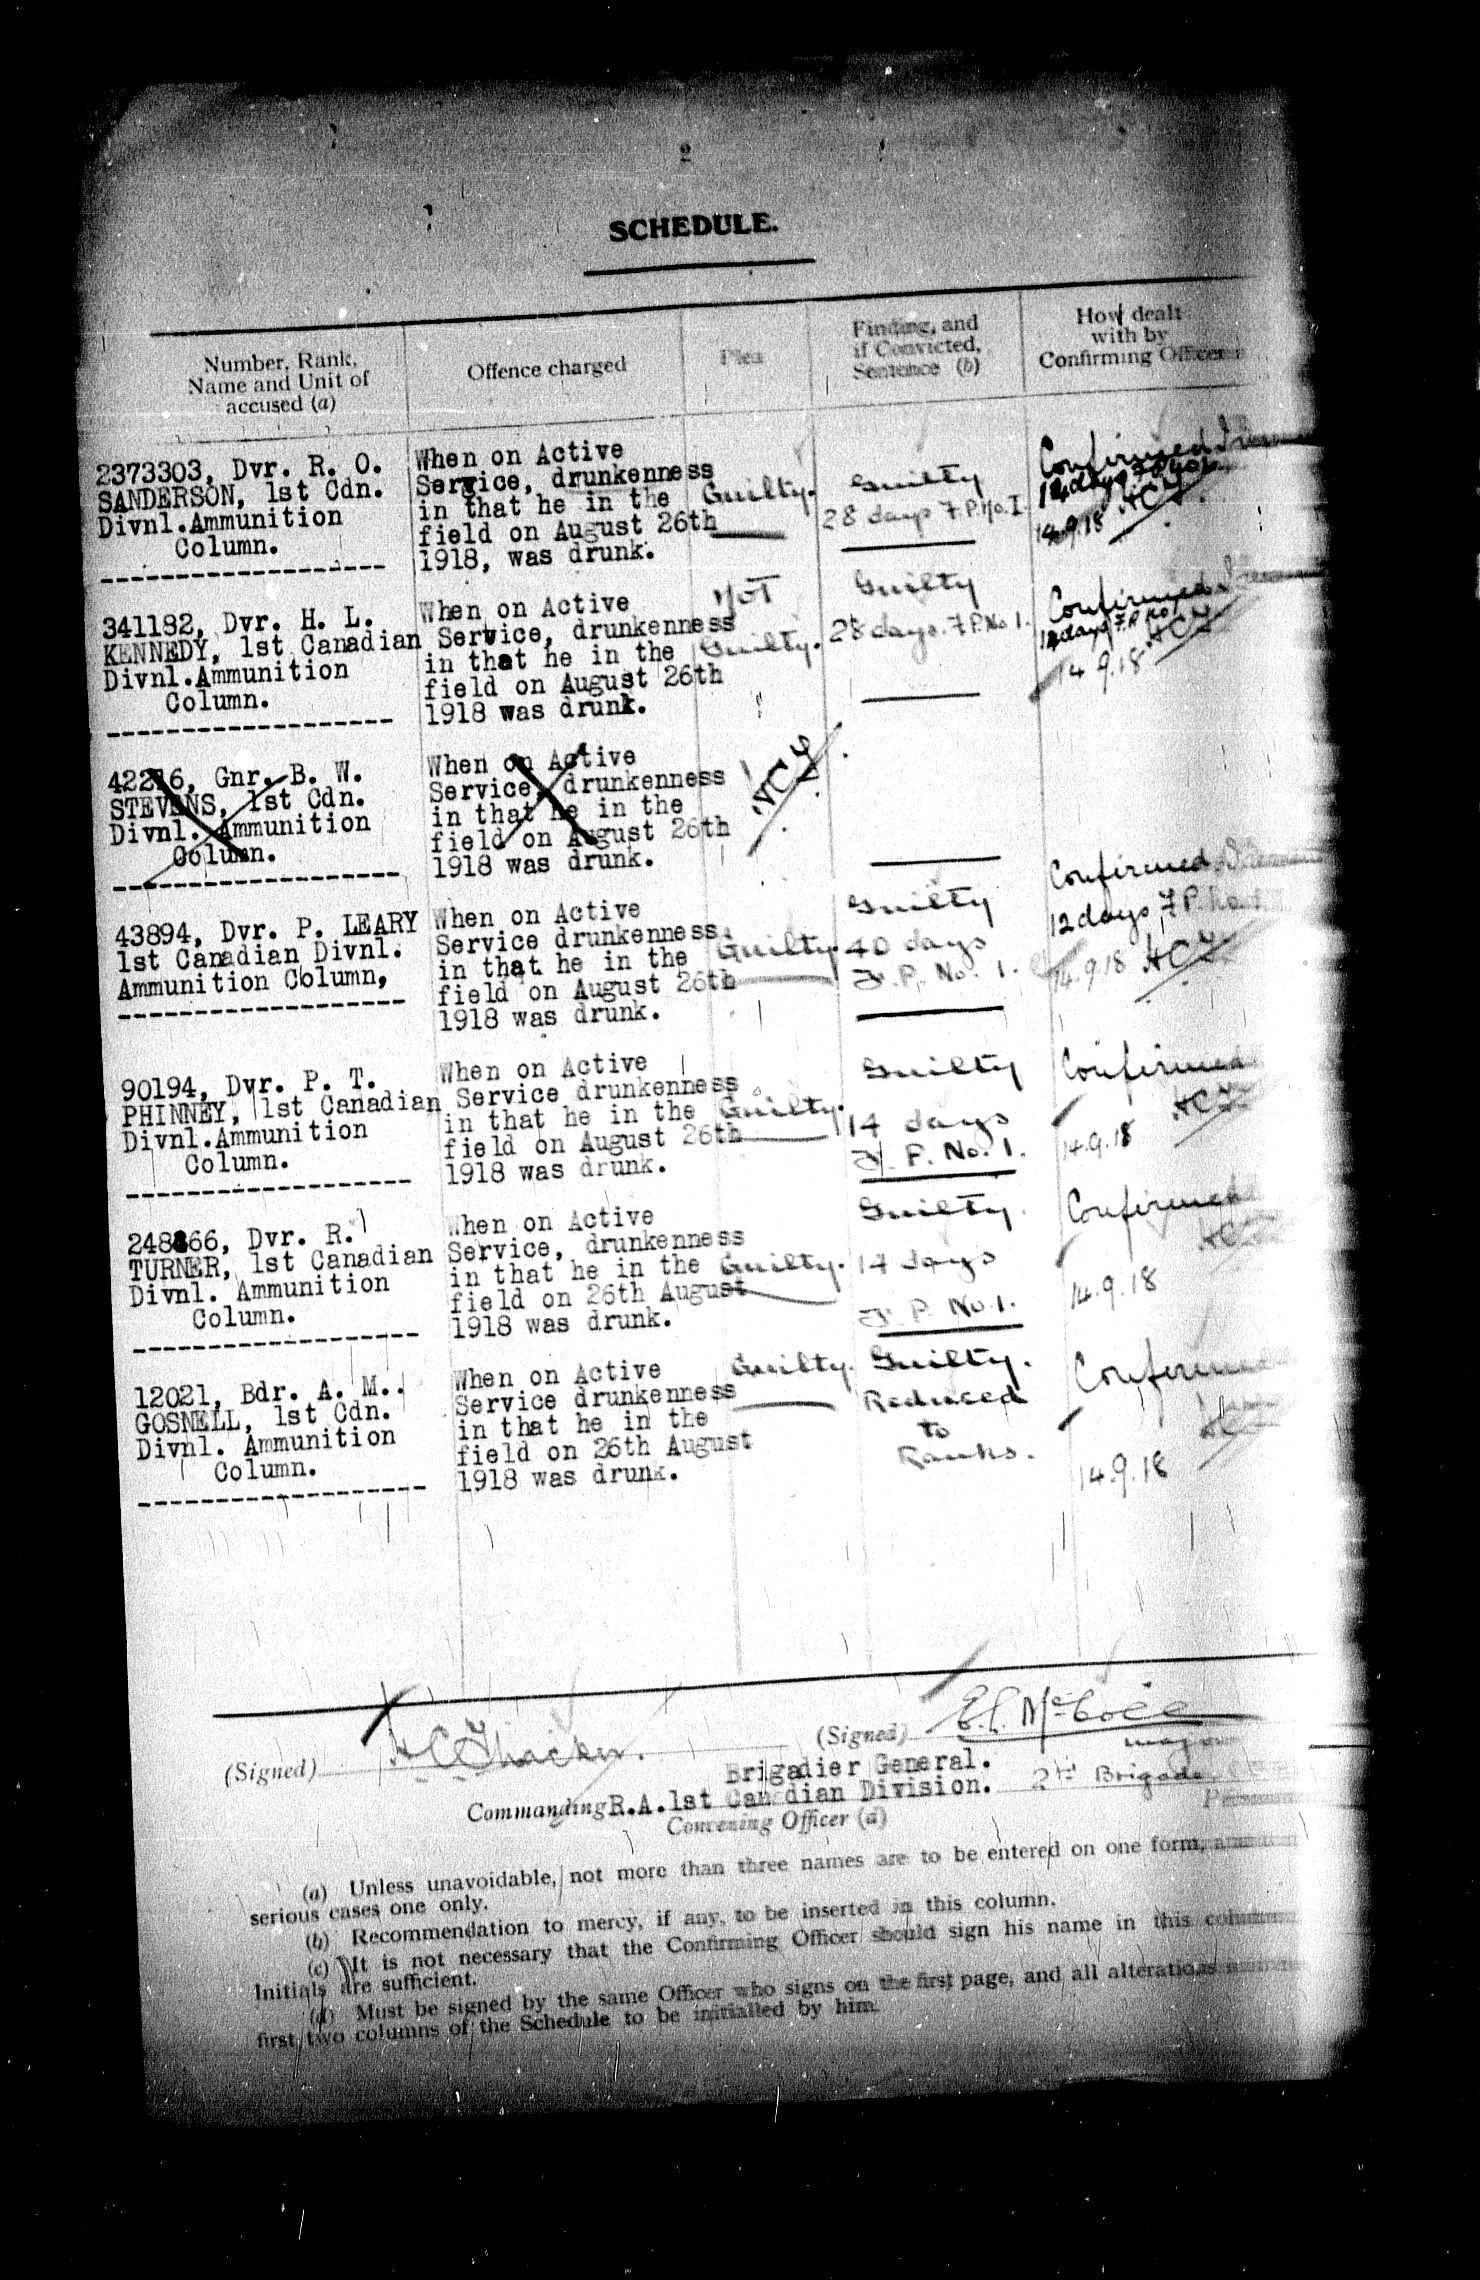 2
SCHEDULE.
Number, Rank,
Name and Unit of
accused (a)
Offence charged
Plea
Finding, and
if Convicted,
Sentence (b)
How dealt
with by
Confirming Officer
2373303, Dvr. R. O.
SANDERSON, 1st Cdn.
Divnl.Ammunition
Column.
When on Active
Service, drunkenness
in that he in the
field on August 26th
1918, was drunk.
Guilty.
Guilty
28 days F.P. No. I.
Confirmed
14.9.18 HCT
341182, Dvr. H. L.
KENNEDY, 1st Canadian
Divnl.Ammunition
Column.
When on Active
Service, drunkenness
in that he in the
field on August 26th
1918 was drunk.
NOT
Guilty.
Guilty
28 days. F.P. No 1.
Confirmed
14.9.18 HCT
42216, Gnr. B. W.
STEVENS, 1st Cdn.
Divnl. Ammunition
Column.
When on Active
Service, drunkenness
in that he in the
field on August 26th
1918 was drunk.
HCT
43894, Dvr. P. LEARY
1st Canadian Divnl.
Ammunition Column,
When on Active
Service drunkenness
in that he in the
field on August 26th
1918 was drunk.
Guilty.
Guilty
40 days
F. P. No. 1.
Confirmed
12 days F.P. No. 1
14.9.18 HCT
90194, Dvr. P. T.
PHINNEY, 1st Canadian
Divnl.Ammunition
Column.
When on Active
Service drunkenness
in that he in the
field on August 26th
1918 was drunk.
Guilty.
Guilty
14 days
F. P. No. 1.
Confirmed
HCT
14.9.18
248866, Dvr. R.
TURNER, 1st Canadian
Divnl. Ammunition
Column.
When on Active
Service, drunkenness
in that he in the
field on 26th August
1918 was drunk.
Guilty.
Guilty.
14 days
F. P. No. 1.
Confirmed
HCT
14.9.18
12021, Bdr. A. M.
GOSNELL, 1st Cdn.
Divnl. Ammunition
Column.
When on Active
Service drunkenness
in that he in the
field on 26th August
1918 was drunk.
Guilty.
Guilty.
Reduced
to
Ranks.
Confirmed
HCT
14.9.18
(Signed) HCThacker.
Brigadier General.
Commanding R.A.1st Canadian Division.
Convening Officer (d)
(Signed) McColl
Major
2nd Brigade
(a) Unless unavoidable, not more than three names are to be entered on one form,
serious cases one only.
(b) Recommendation to mercy, if any, to be inserted in this column.
(c) It is not necessary that the Confirming Officer should sign his name in this column
Initials are sufficient.
(d) Must be signed by the same Officer who signs on the first page, and all alterations
first two columns of the Schedule to be initialled by him.